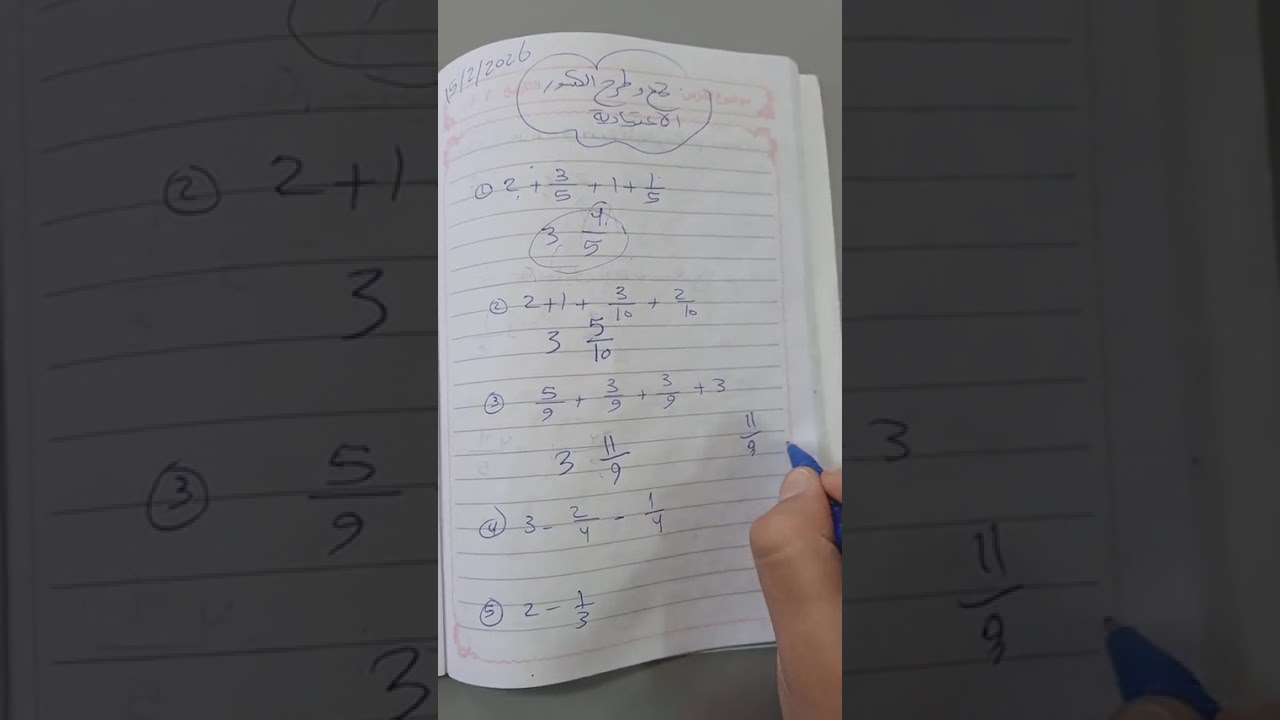 15/2/2026
جمع وطرح الكسور
الاعتيادية
① 2 + 3/5 + 1 + 1/5
3 4/5
② 2+1 + 3/10 + 2/10
3 5/10
③ 5/9 + 3/9 + 3/9 + 3
11/9
3 11/9
④ 3 - 2/4 - 1/4
⑤ 2 - 1/3